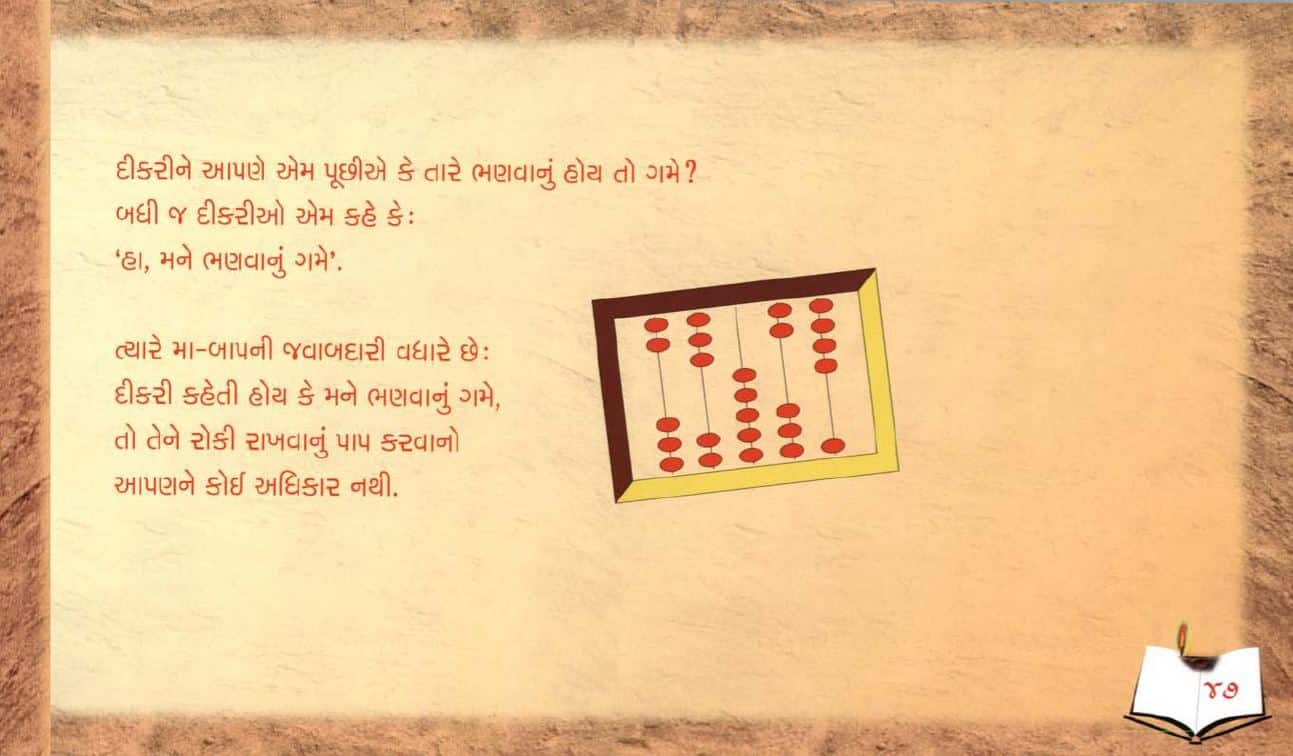 દીકરીને આપણે એમ પૂછીએ કે તારે ભણવાનું હોય તો ગમે?
બધી જ દીકરીઓ એમ કહે કે:
‘હા, મને ભણવાનું ગમે’.
ત્યારે મા-બાપની જવાબદારી વધારે છે:
દીકરી કહેતી હોય કે મને ભણવાનું ગમે,
તો તેને રોકી રાખવાનું પાપ કરવાનો
આપણને કોઈ અધિકાર નથી.
૪૭